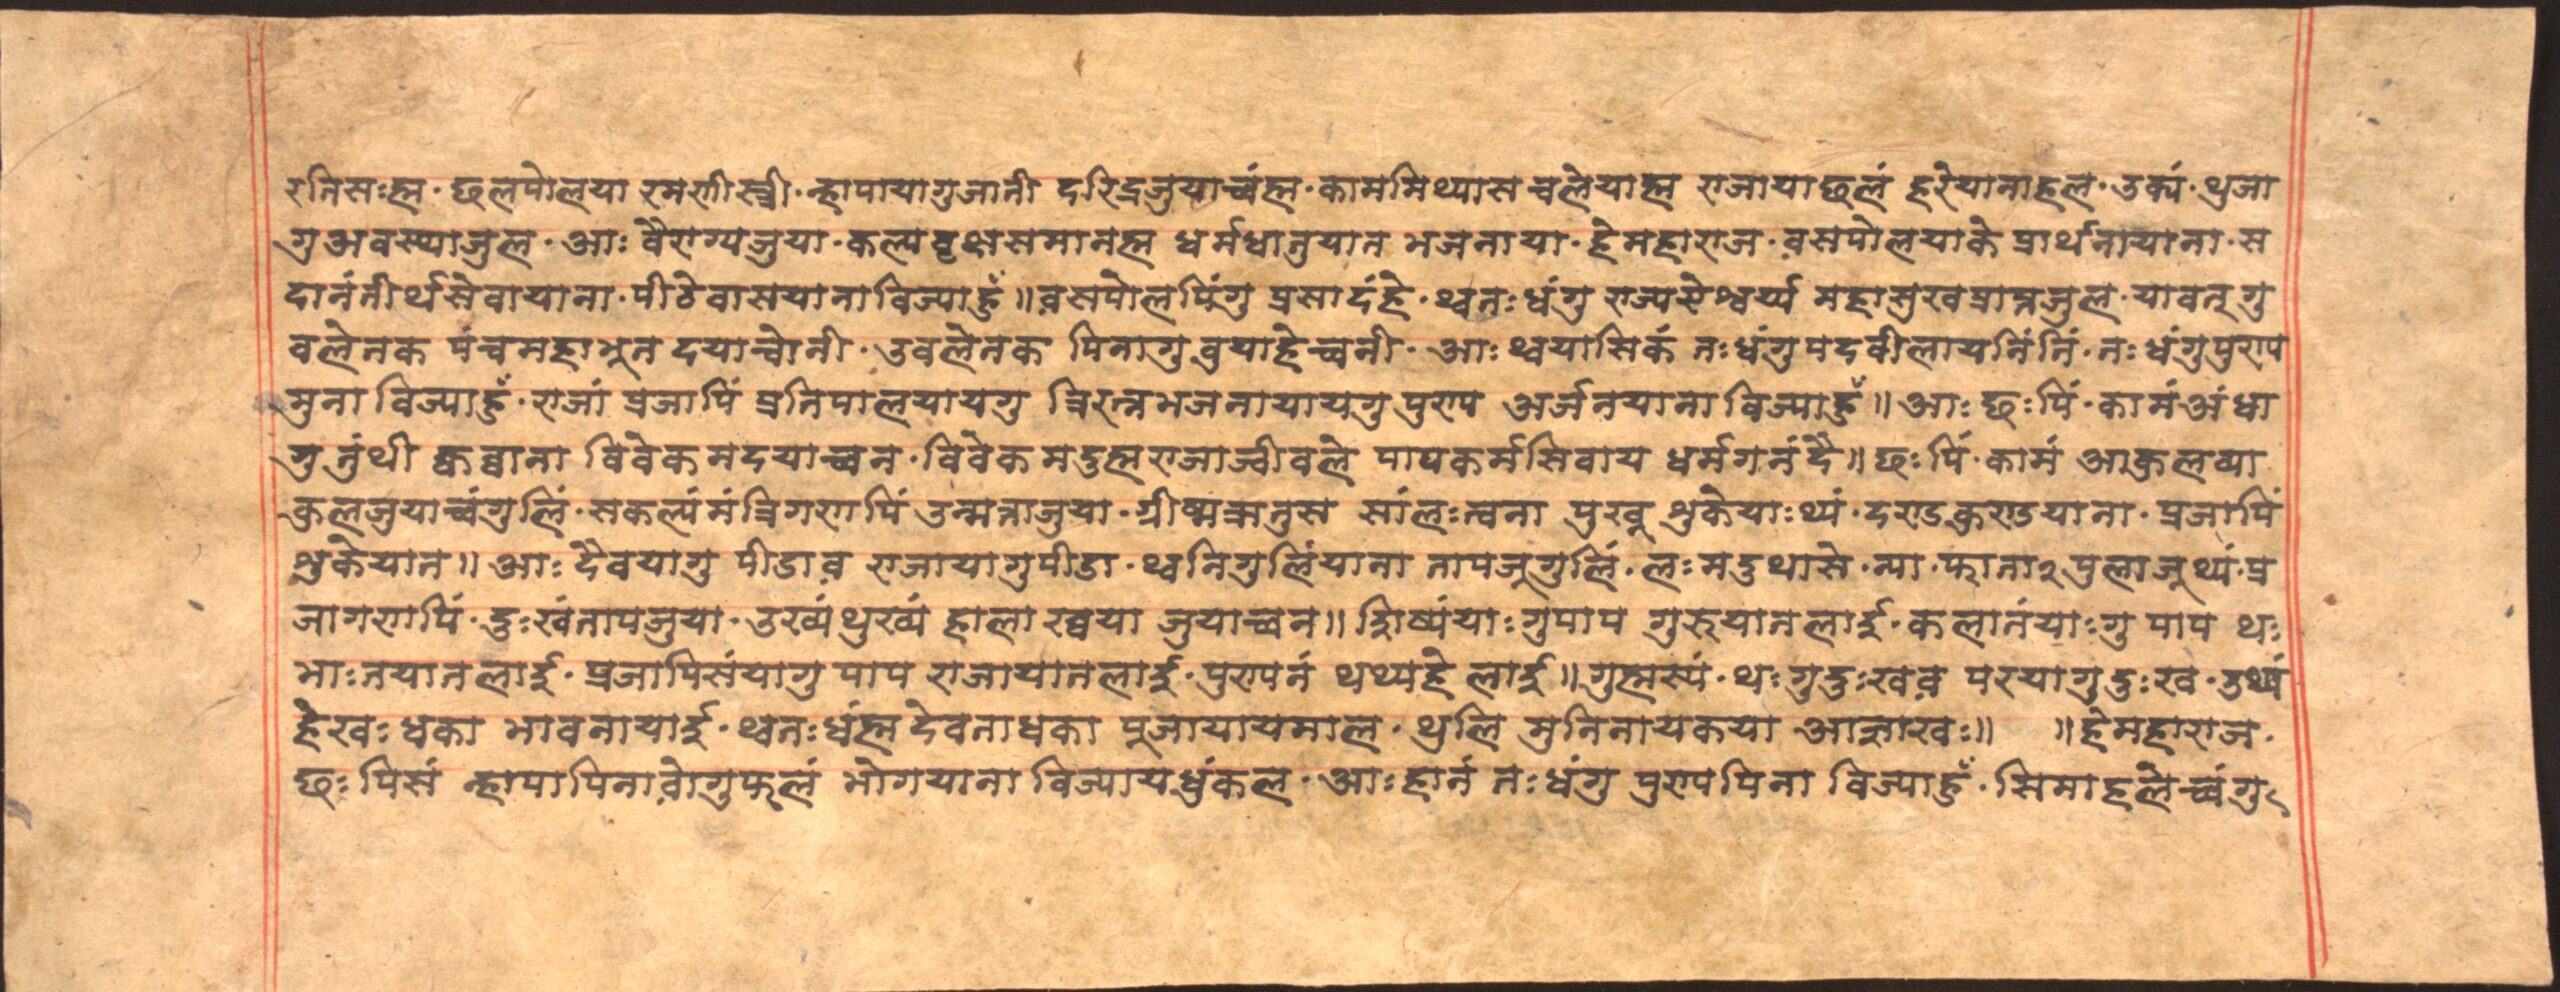 रतिसःह्म· छलपोलया रमणीस्त्री· न्हापायागुजानी दरिद्रजुयाच्वंह्म· काममिथ्यास चलेयाह्म राजायाछलं हरेयानाहल· उक्यं· थुजा
गु अवस्थाजुल· आः वैराग्यजुया· कल्पवृक्षसमानह्म धर्मधातुयात भजनाया· हेमहाराज· व़सपोलयाके प्रार्थनायाना· स
दानंतीर्थसेवायाना· पीठेवासयानाविज्याहुँ॥ व़सपोलपिंगु प्रसादंहे· थ्वतःधंगु राज्यऐश्वर्य्य महासुखप्राप्तजुल· यावत्गु
वलेतक पंचमहाभूत दयाच्वोनी· उवलेतक पिनागु वुयाहेच्वनी· आः थ्वयासिकं तःधंगुपदवीलायनिंतिं· तःधंगुपुण्य
मुना विज्याहुँ· राजां प्रजापिं प्रतिपालयायगु त्रिरत्नभजनायायगु पुण्य अर्जनयाना विज्याहुँ॥ आः छःपिं· कामंअंधा
गु तुंथी कुब्वाना विवेकमदयाच्वन· विवेकमदुह्मराजाज्वीवले पापकर्मसिवाय धर्मगनंदै॥ छःपिं· कामं आकुलव्या
कुलजुयाच्वंगुलिं· सकल्यंमंत्रिगणपिं उन्मत्ताजुया· ग्रीष्मऋतुस सांलःत्वना पुखू शुकेयाःथ्यं· दण्डकुण्डयाना· प्रजापिं
शुकेयात॥ आः दैवयागु पीडाव़ राजायागुपीडा· थ्वनिगुलिंयाना तापजूगुलिं· लःमदुथासे· न्या· फाताऱ२ पुलाजूथ्यं· प्र
जागणपिं· दुःखंतापजुया· उख्यंथुख्यं हाला ख्वया जुयाच्वन॥ शिष्यंयाःगुपाप गुरुयातलाई· कलातंयाःगु पाप थः
भाःतयातलाई· प्रजापिसंयागु पाप राजायातलाई· पुण्यनं थथ्यहे लाई॥ गुह्मस्यं· थःगुदुःखव़ परयागु दुःख· उथ्यं
हेखः धका भावनायाई· थ्वतःधंह्म देवताधका पूजायायमाल· थुलि मुनिनायकया आज्ञाखः॥ ॥हेमहाराज·
छःपिसं न्हापापिनाव़ोगुफलं भोगयाना विज्यायधुंकल· आःहानं तःधंगु पुण्यपिना विज्याहुँ· सिमाहलेच्वंगु